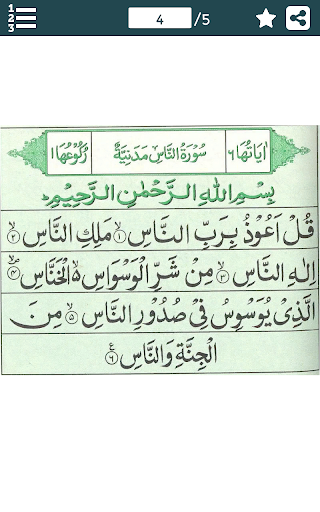 1
2
3
4 /5
اٰيَاتُهَا ٦ سُوْرَةُ النَّاسِ مَدَنِيَّةٌ رُكُوْعُهَا ١
بِسْمِ اللهِ الرَّحْمٰنِ الرَّحِيْمِ
قُلْ اَعُوْذُ بِرَبِّ النَّاسِ ۙ﴿١﴾ مَلِكِ النَّاسِ ۙ﴿٢﴾
اِلٰهِ النَّاسِ ۙ﴿٣﴾ مِنْ شَرِّ الْوَسْوَاسِ ۙ۬ الْخَنَّاسِ ۪ۙ﴿٤﴾
الَّذِيْ يُوَسْوِسُ فِيْ صُدُوْرِ النَّاسِ ۙ﴿٥﴾ مِنَ
الْجِنَّةِ وَالنَّاسِ ﴿٦﴾ ع